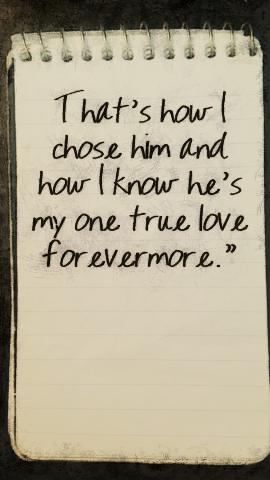 That's how I
chose him and
how I know he's
my one true love
forevermore."